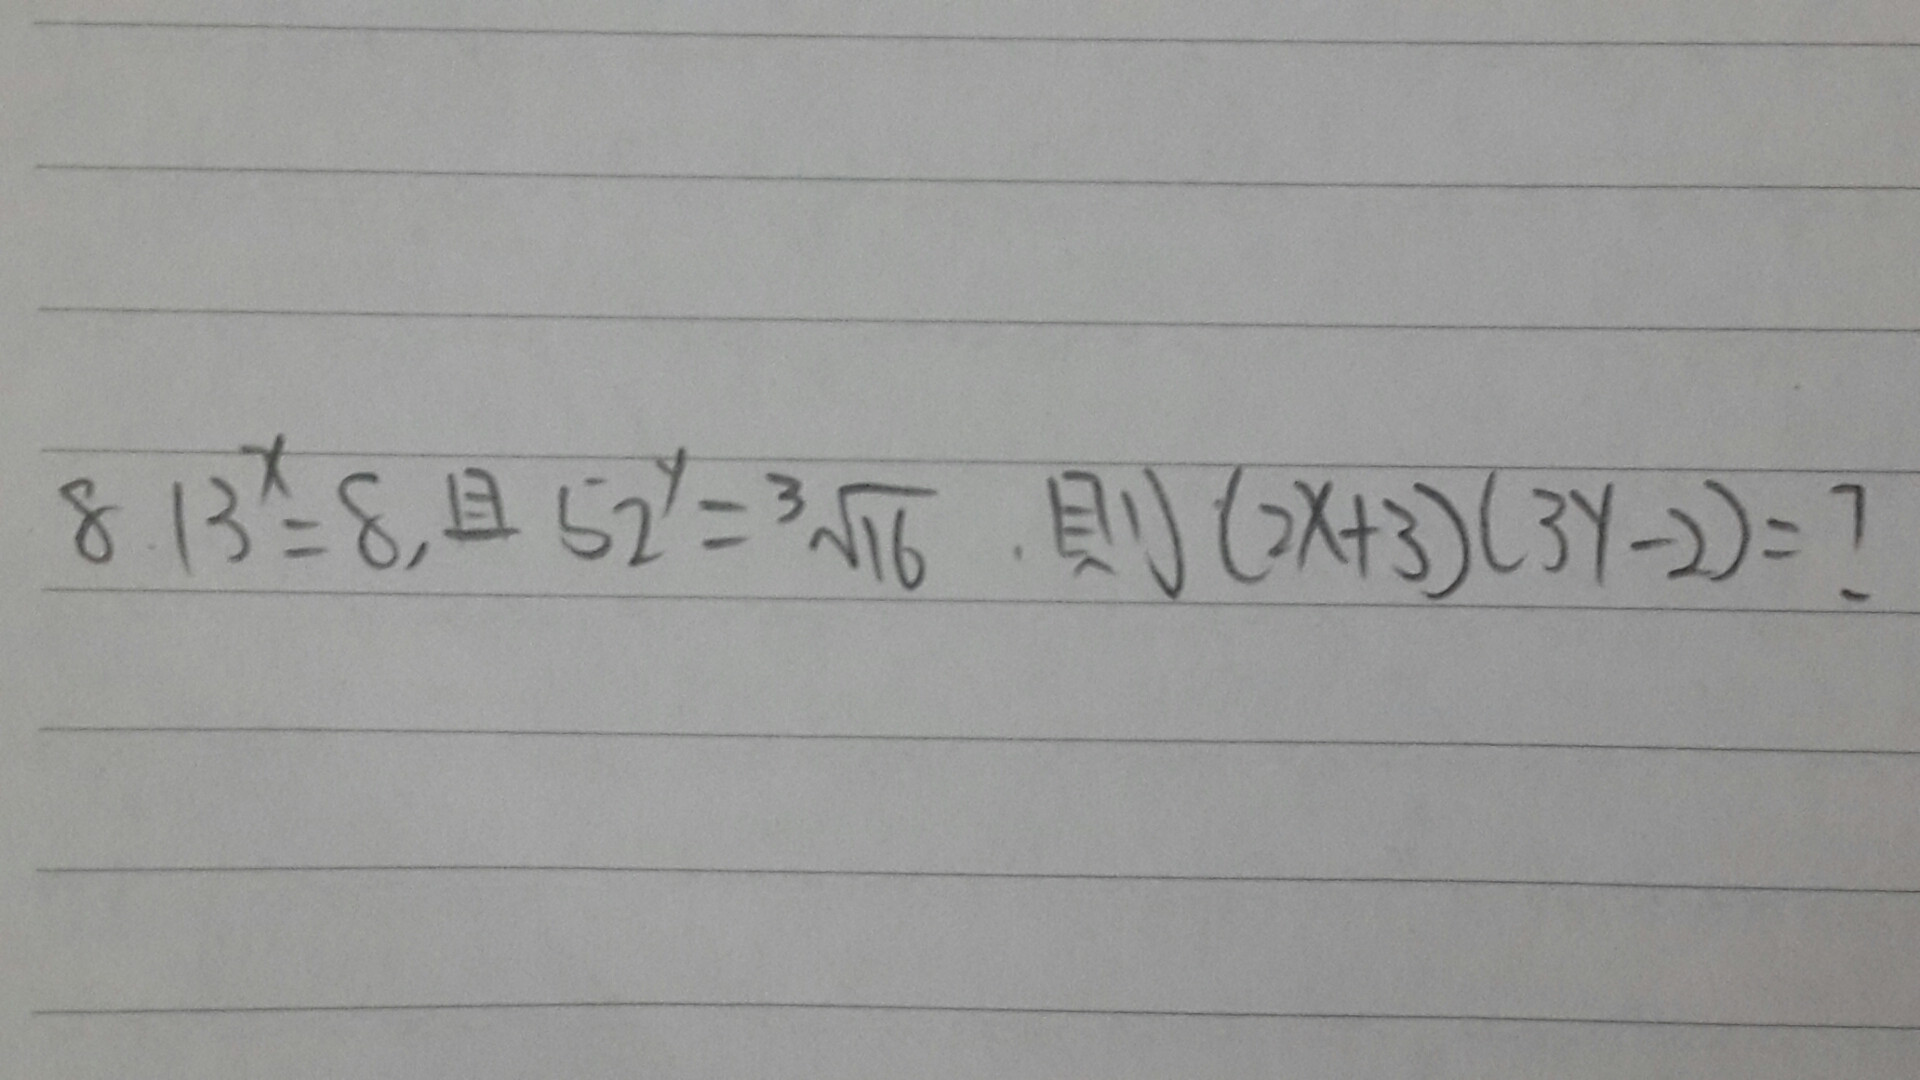 8. 13^x=8,且 52^y=³√16 . 則(2x+3)(3y-2)=?